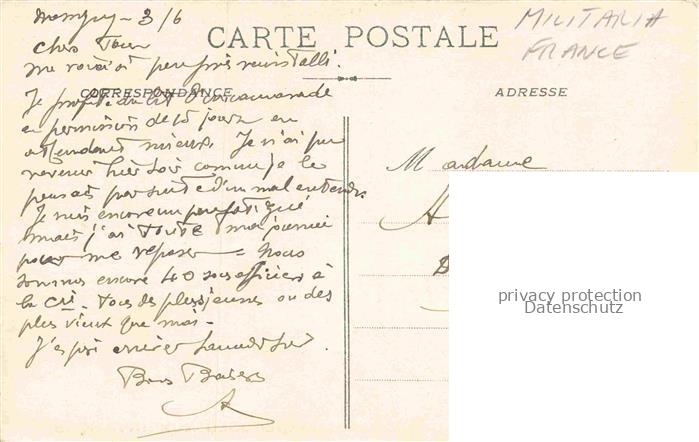 3/6
Chers Tous
me voici à peu près réinstallé.
Je profite du lit d'un camarade
en permission de 15 jours en
attendant mieux. Je n'ai pu
revenir hier soir comme je le
pensais par suite d'un malentendu.
Je suis encore un peu fatigué
mais j'ai toute ma journée
pour me reposer - Nous
sommes encore 40 sous officiers à
la Cie. Tous des plus jeunes ou des
plus vieux que moi -
J'espère arriver Samedi soir.
Bons Baisers
A
CARTE POSTALE
CORRESPONDANCE
MILITARIA
FRANCE
ADRESSE
Madame
privacy protection
Datenschutz